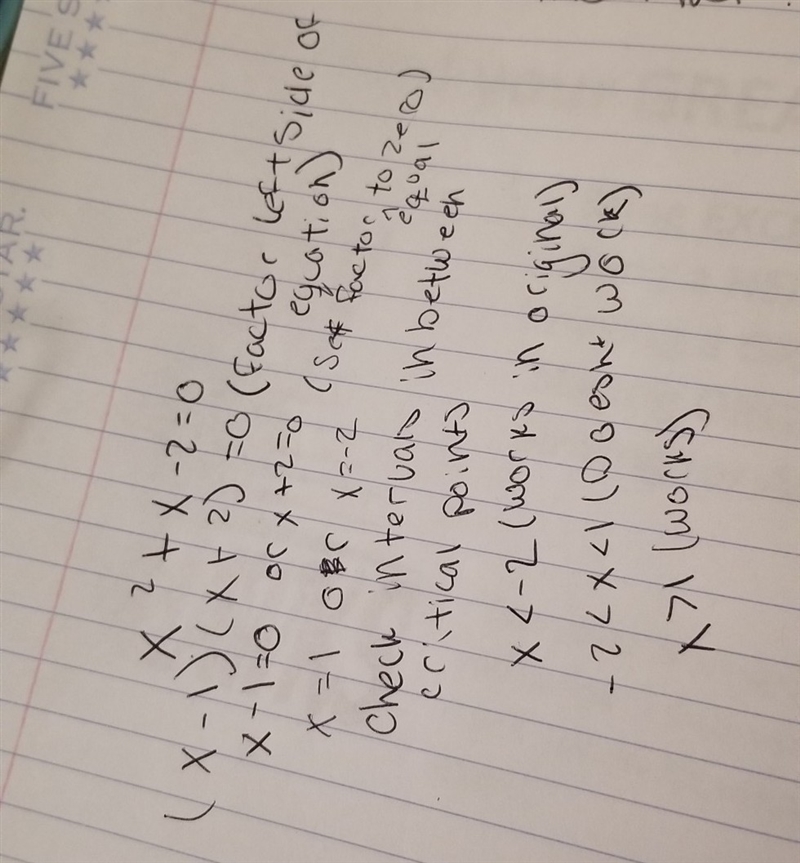 FIVE S
STAR.
x² + x - 2 = 0
(x - 1)(x + 2) = 0 (factor left side of
equation)
x - 1 = 0 or x + 2 = 0 (Set factors to zero)
equal
x = 1 or x = -2
Check intervals inbetween
critical points
x < -2 (works in original)
-2 < x < 1 (Doesn't work)
x > 1 (works)